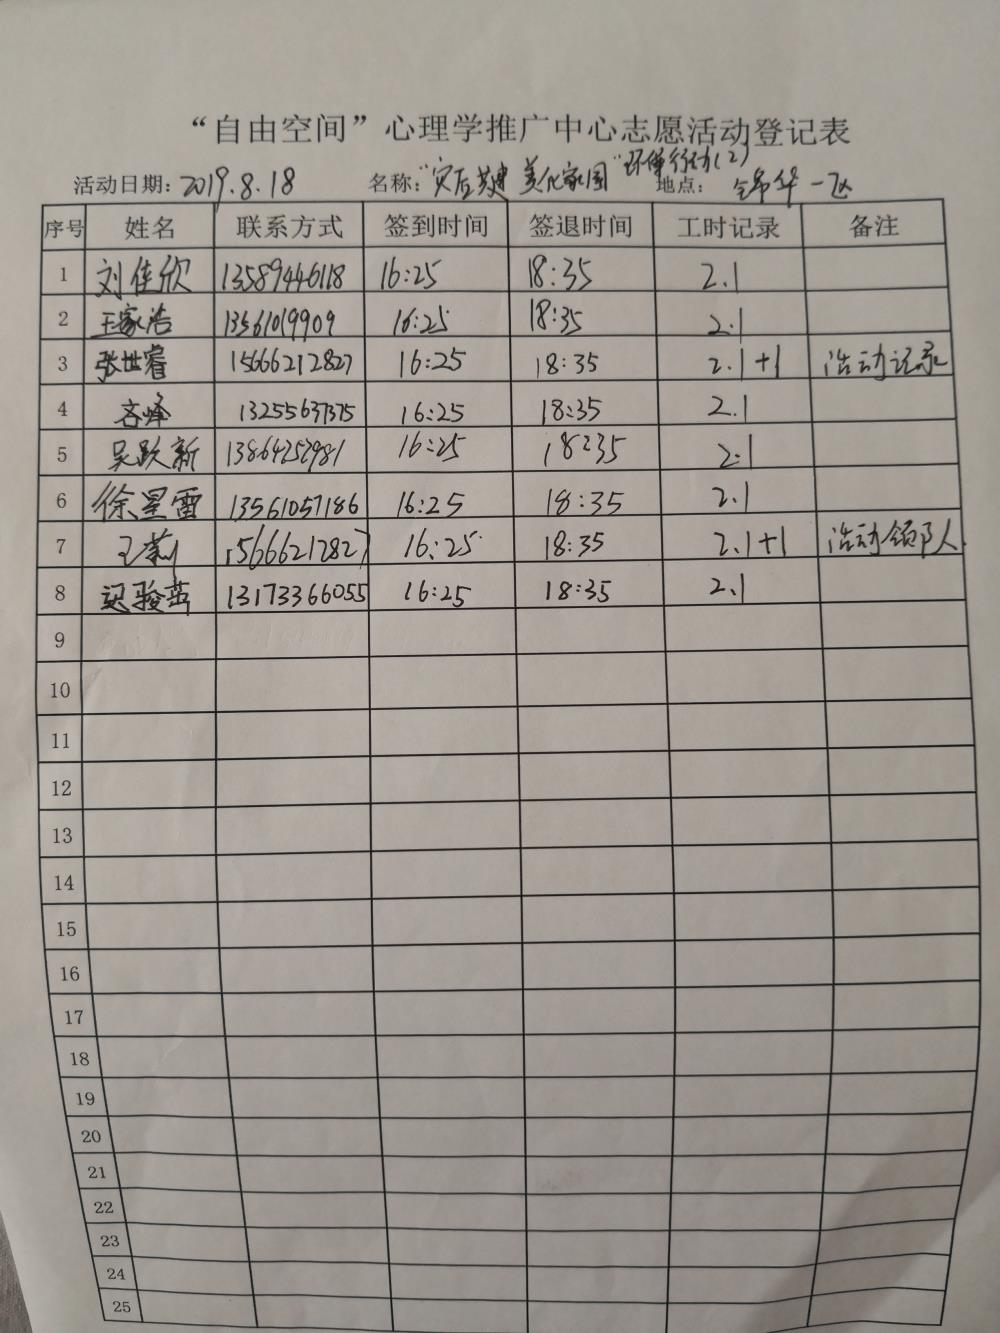 “自由空间”心理学推广中心志愿活动登记表
活动日期：2019.8.18 名称：“灾后共建 美化家园”环保行动(2) 地点：
序号 姓名 联系方式 签到时间 签退时间 工时记录 备注
1 刘佳欣 13589446118 16:25 18:35 2.1
2 王家浩 13561019909 16:25 18:35 2.1
3 张世睿 15666212827 16:25 18:35 2.1+1 活动记录
4 13255637375 16:25 18:35 2.1
5 吴跃新 13864252981 16:25 18:35 2.1
6 徐星雷 13561057186 16:25 18:35 2.1
7 王莉 15666212827 16:25 18:35 2.1+1 活动领队人
8 13173366055 16:25 18:35 2.1
9
10
11
12
13
14
15
16
17
18
19
20
21
22
23
24
25